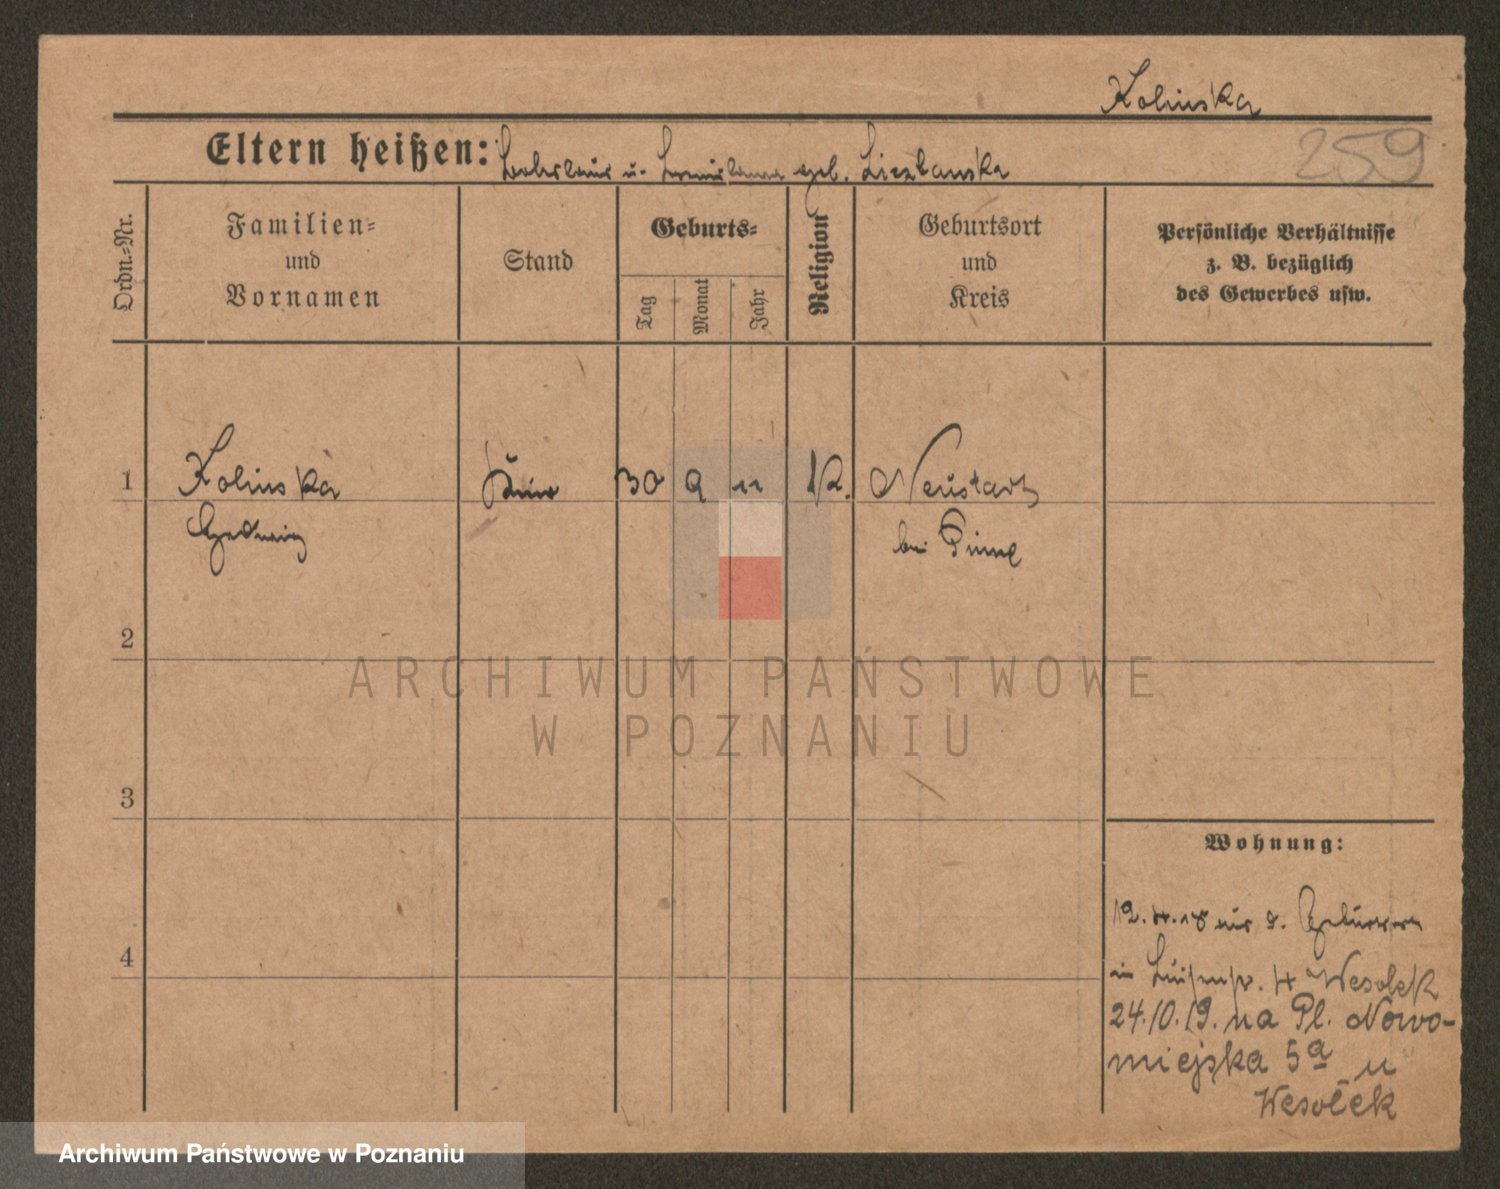 Kolinska
259
Eltern heißen: u. geb. Liezbanska
Ordn.-Nr.
Familien-
und
Vornamen
Stand
Geburts-
Tag
Monat
Jahr
Religion
Geburtsort
und
Kreis
Persönliche Verhältnisse
z. B. bezüglich
des Gewerbes usw.
1
Kolinska
30 9 K. Neustadt
Hedwig
bei Pinne
2
ARCHIWUM PAŃSTWOWE
W POZNANIU
3
Wohnung:
4
12.4.18 aus d.
in Luisenstr. 4 Wesolek
24.10.19. na Pl. Nowo-
miejska 5a u
Wesołek
Archiwum Państwowe w Poznaniu